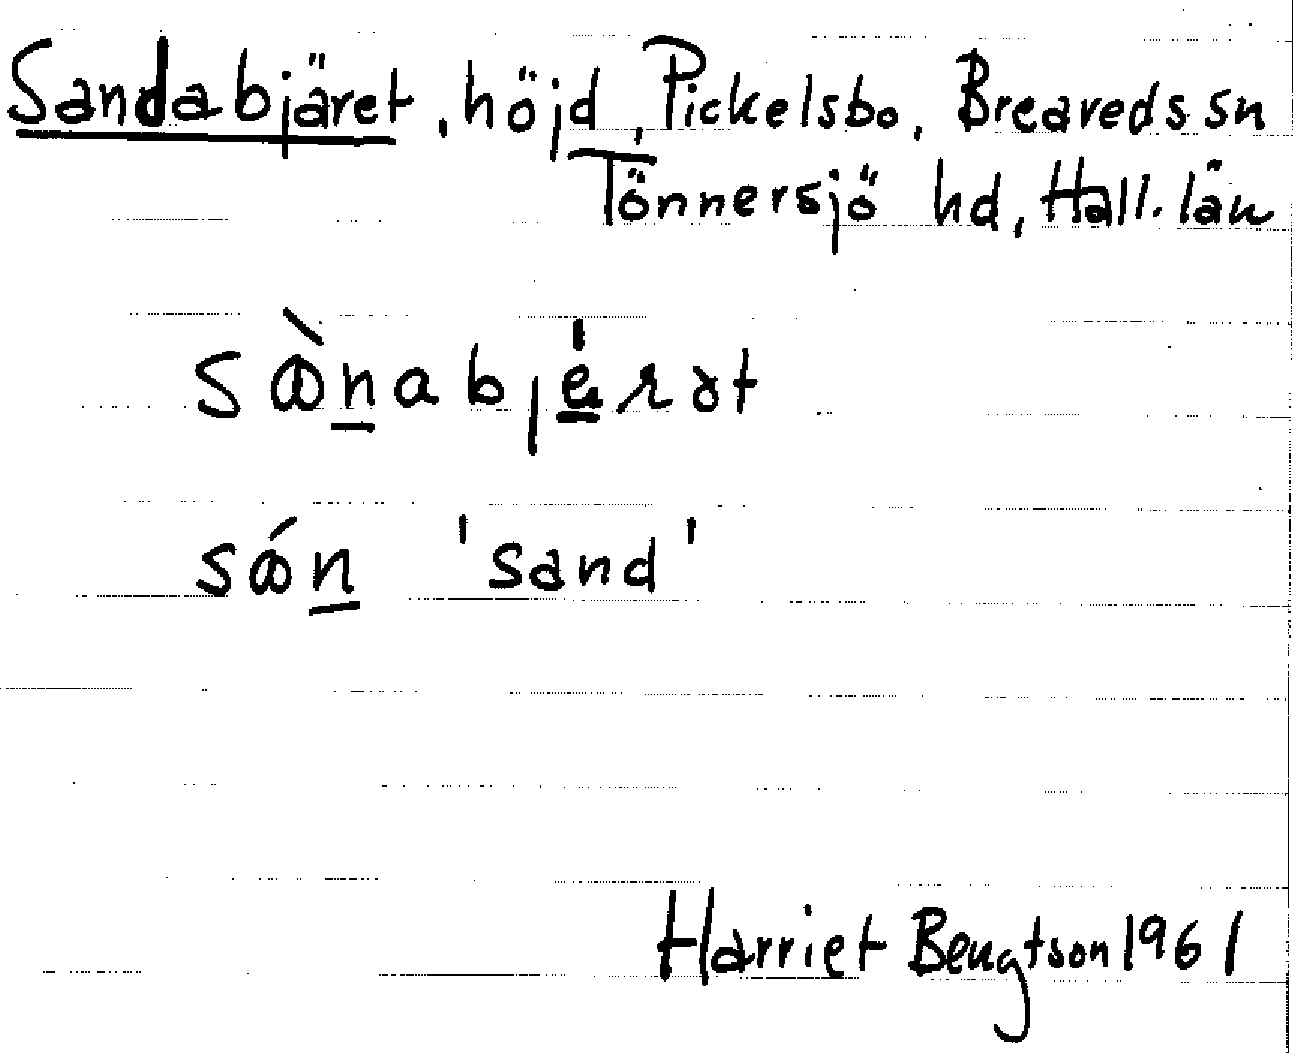 Sandabjäret, höjd, Pickelsbo, Breareds sn
Tönnersjö hd, Hall. län
'sand'
Harriet Bengtson 1961